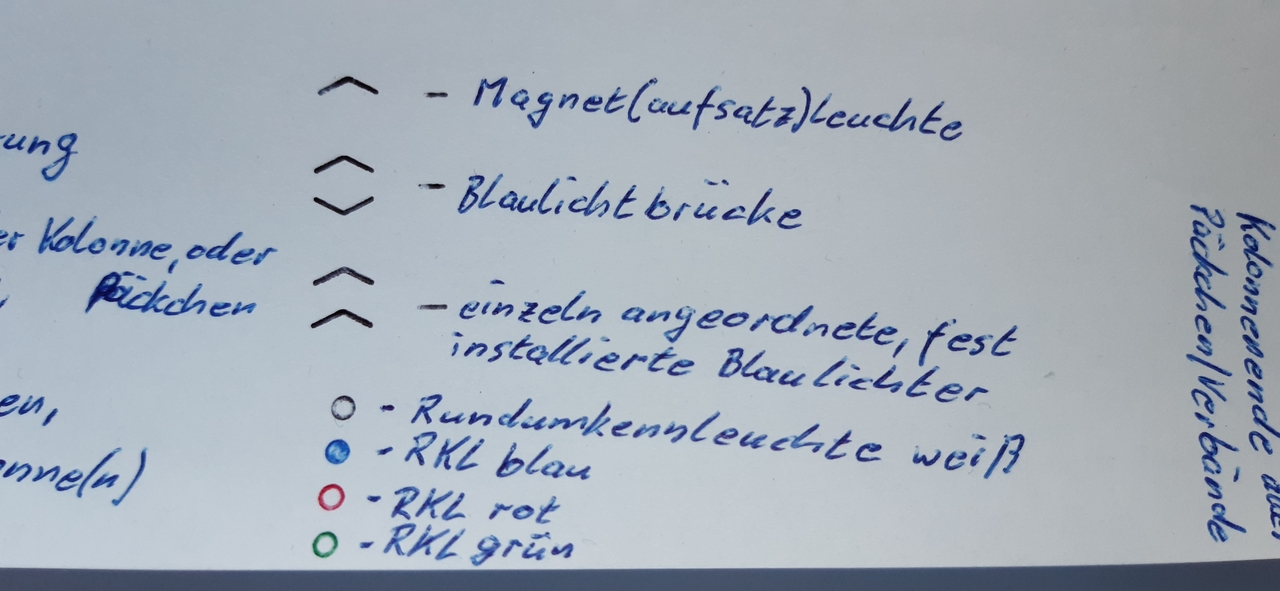 - Magnet(aufsatz)leuchte
- Blaulichtbrücke
er Kolonne, oder
Päckchen
- einzeln angeordnete, fest
installierte Blaulichter
- Rundumkennleuchte weiß
- RKL blau
- RKL rot
- RKL grün
Kolonnenende
Päckchen/Verbände